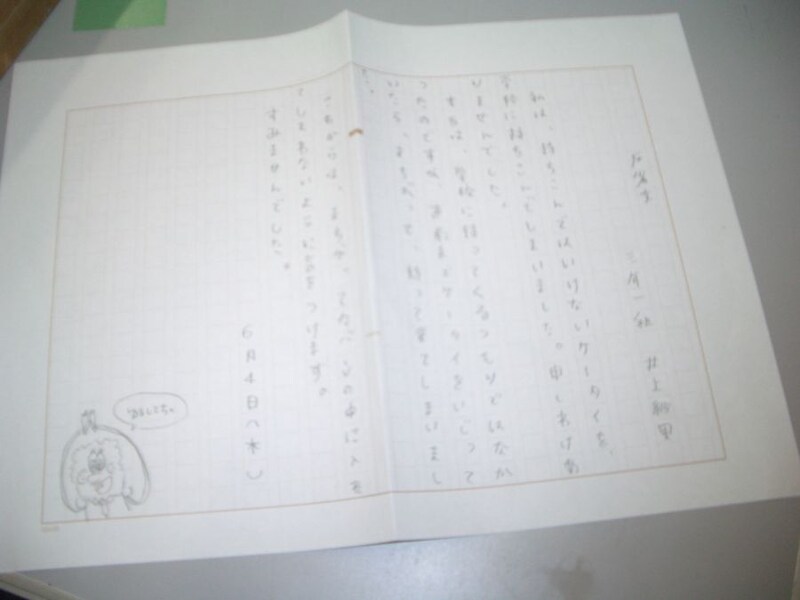 反省文 三年一組 井上
私は、持ちこんではいけないケータイを、
学校に持ちこんでしまいました。申しわけあ
りませんでした。
学校に持ってくるつもりではなか
ったのですが、直前までケータイをいじって
いたら、まちがって、持って来てしまいまし
た。
これからは、まちがってカバンの中に入れ
てしまわないように気をつけます。
すみませんでした。
6月4日(水)